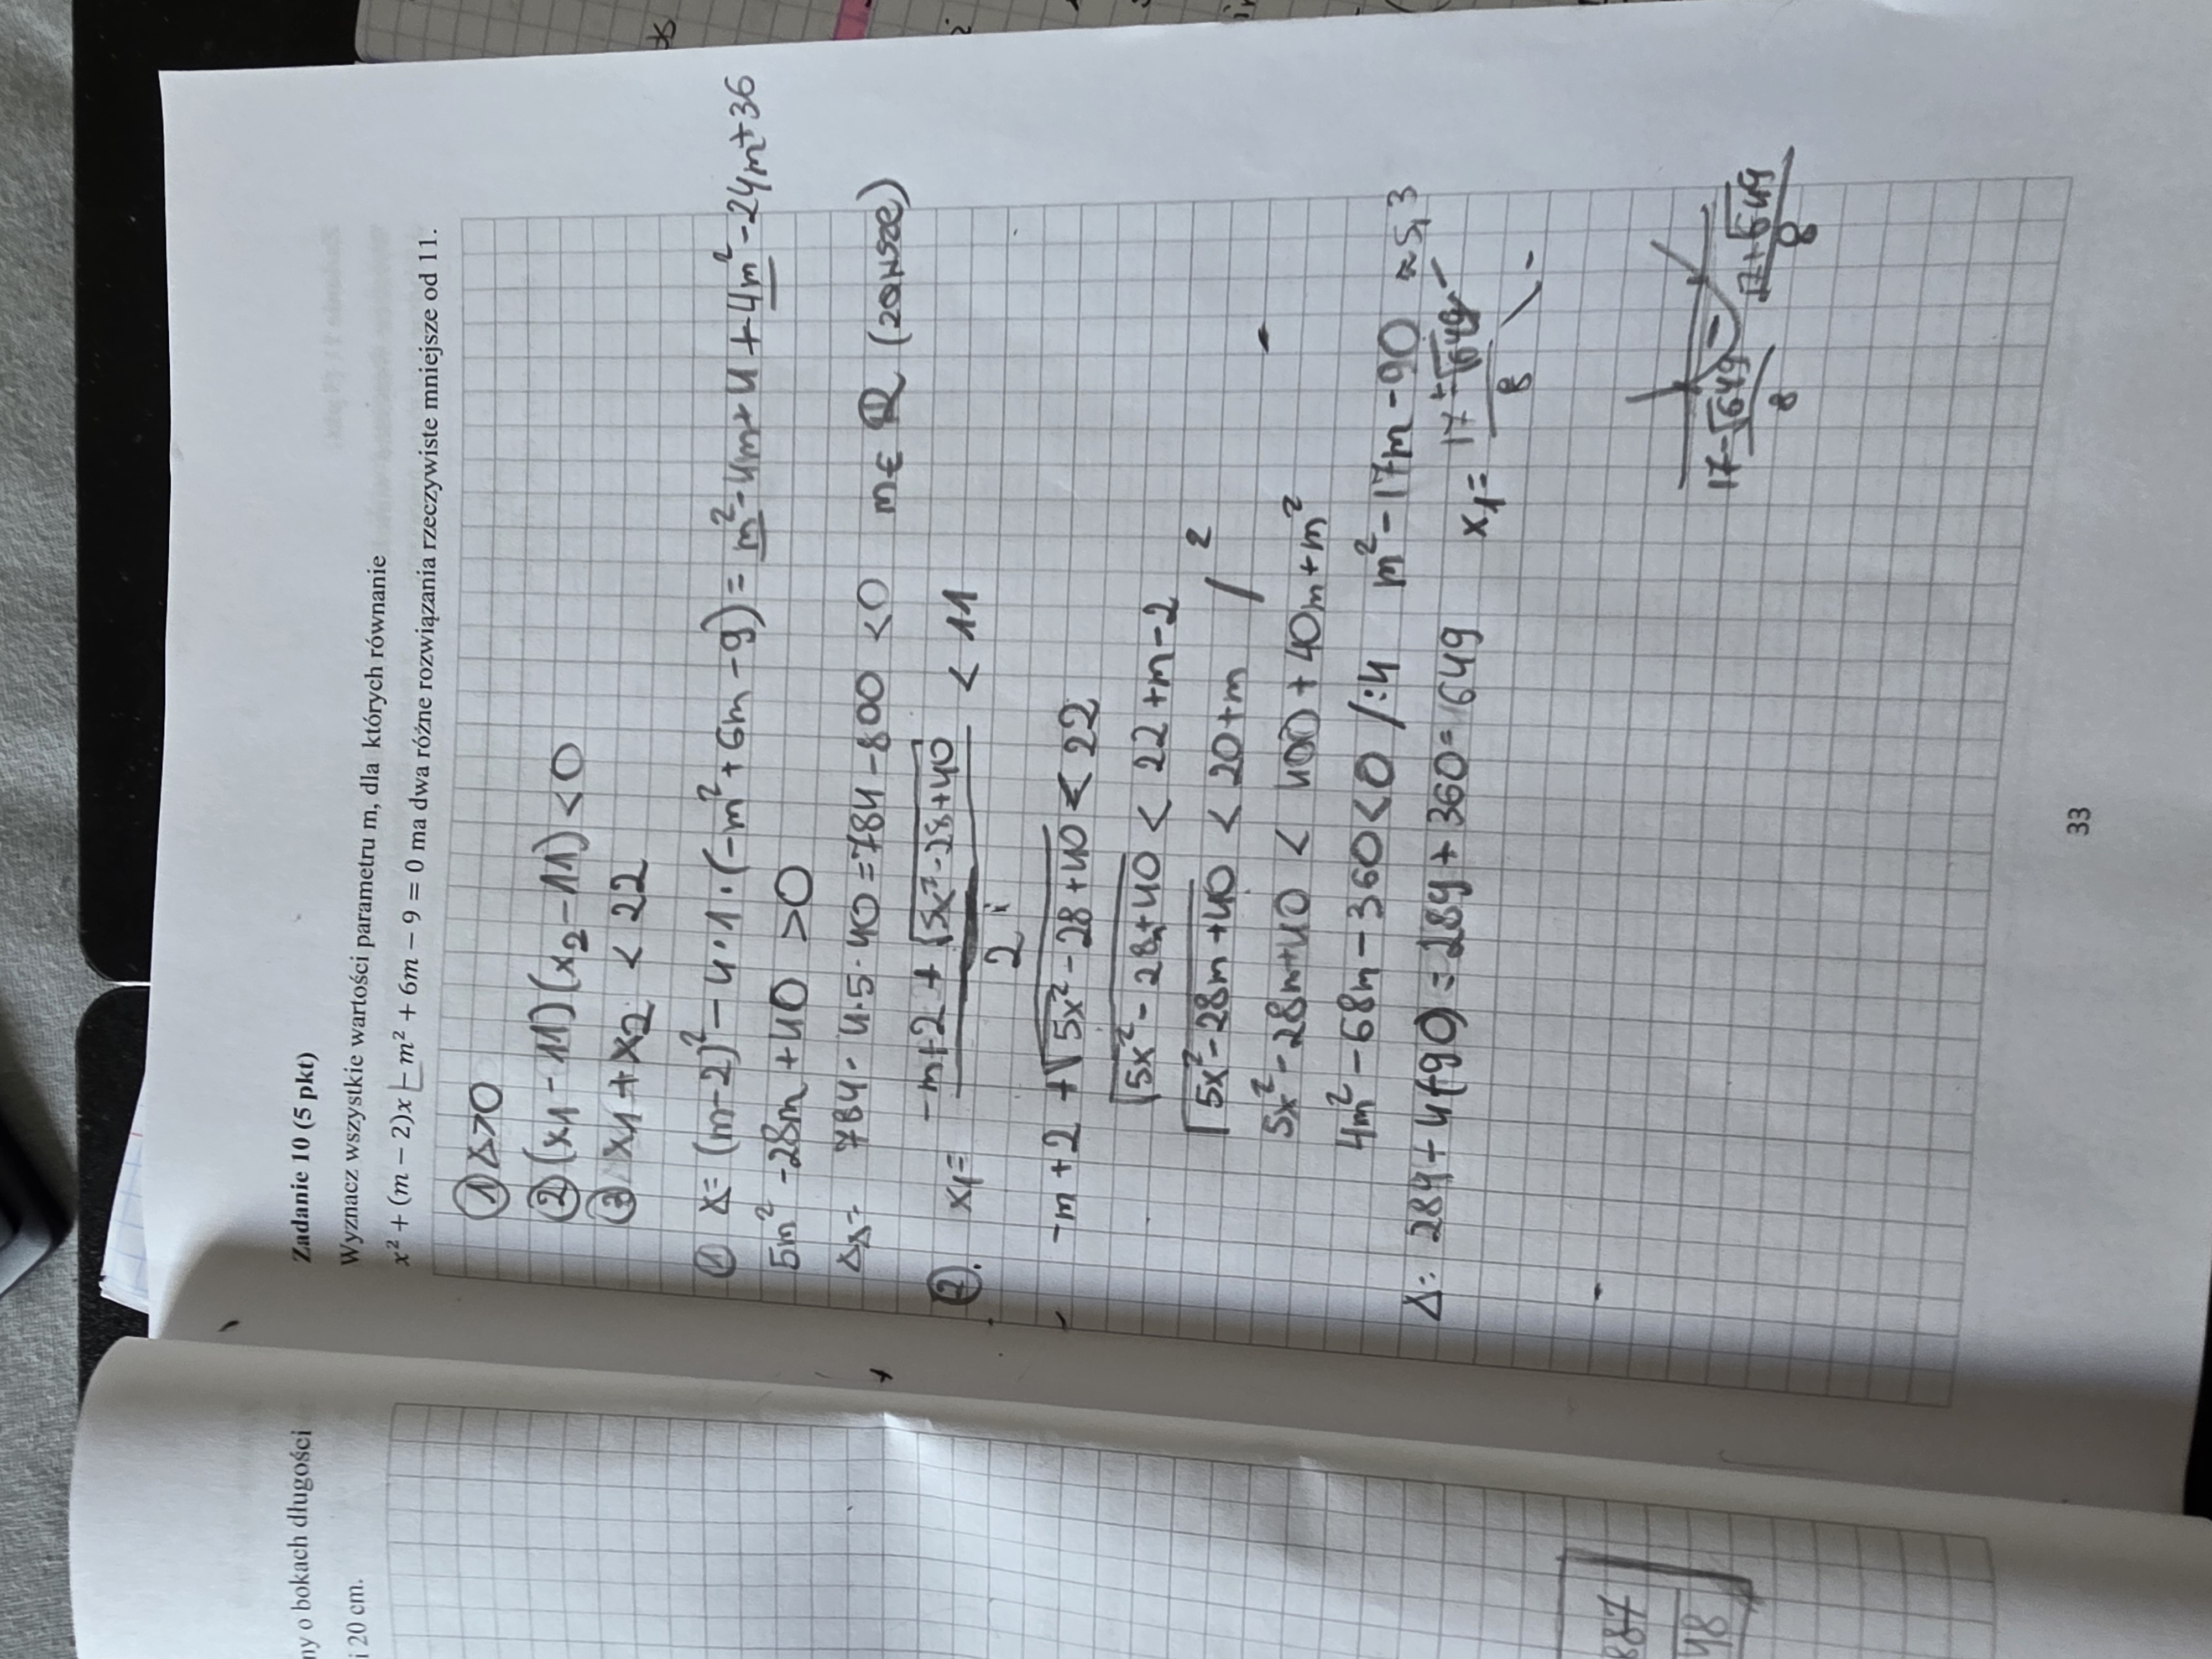 Zadanie 10 (5 pkt)
Wyznacz wszystkie wartości parametru m, dla których równanie
x² + (m − 2)x − m² + 6m − 9 = 0 ma dwa różne rozwiązania rzeczywiste mniejsze od 11.
① Δ>0
② (x₁ - 11)(x₂ - 11) < 0
③ x₁ + x₂ < 22
① Δ = (m-2)² - 4·1·(-m² + 6m - 9) = m² - 4m + 4 + 4m² - 24m + 36
5m² - 28m + 40 > 0
Δ = 784 - 4·5·40 = 784 - 800 < 0 m ∈ R (zawsze)
②. x₁ = -m+2 + √5x² - 28+40 < 11
2
-m + 2 + √5x² - 28 + 40 < 22
√5x² - 28m+40 < 22 + m - 2
√5x² - 28m + 40 < 20 + m / ²
5x² - 28m + 40 < 400 + 40m + m²
4m² - 68m - 360 < 0 /:4 m² - 17m - 90 ≈ 5,3
Δ = 284 + 4(90) = 289 + 360 = 649 x₁ = 17 ± √649
8
17-√649
8
17+√649
8
33
ny o bokach długości
i 20 cm.
887
48